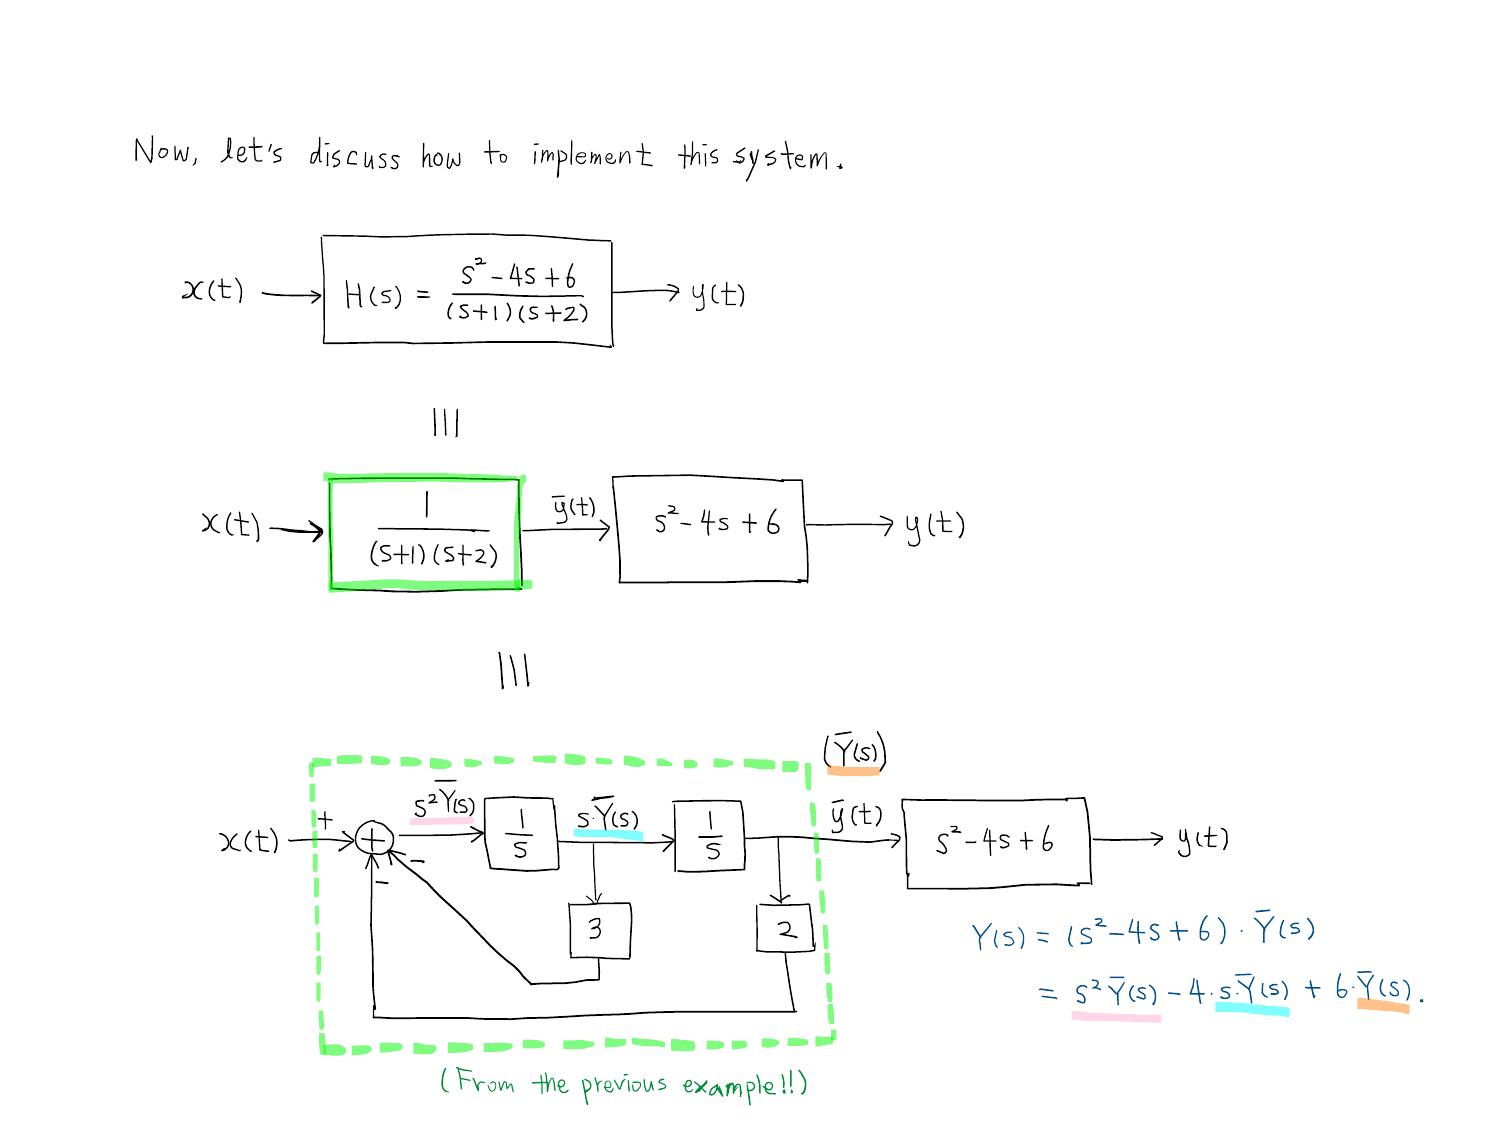 Now, let's discuss how to implement this system.
x(t) H(s) = (s² - 4s + 6) / ((s+1)(s+2)) y(t)
|||
x(t) 1 / ((s+1)(s+2)) ȳ(t) s² - 4s + 6 y(t)
|||
(Ȳ(s))
x(t) + + s²Ȳ(s) 1/s s·Ȳ(s) 1/s ȳ(t) s² - 4s + 6 y(t)
- -
3 2
Y(s) = (s² - 4s + 6) · Ȳ(s)
= s²Ȳ(s) - 4·s·Ȳ(s) + 6·Ȳ(s).
(From the previous example!!)